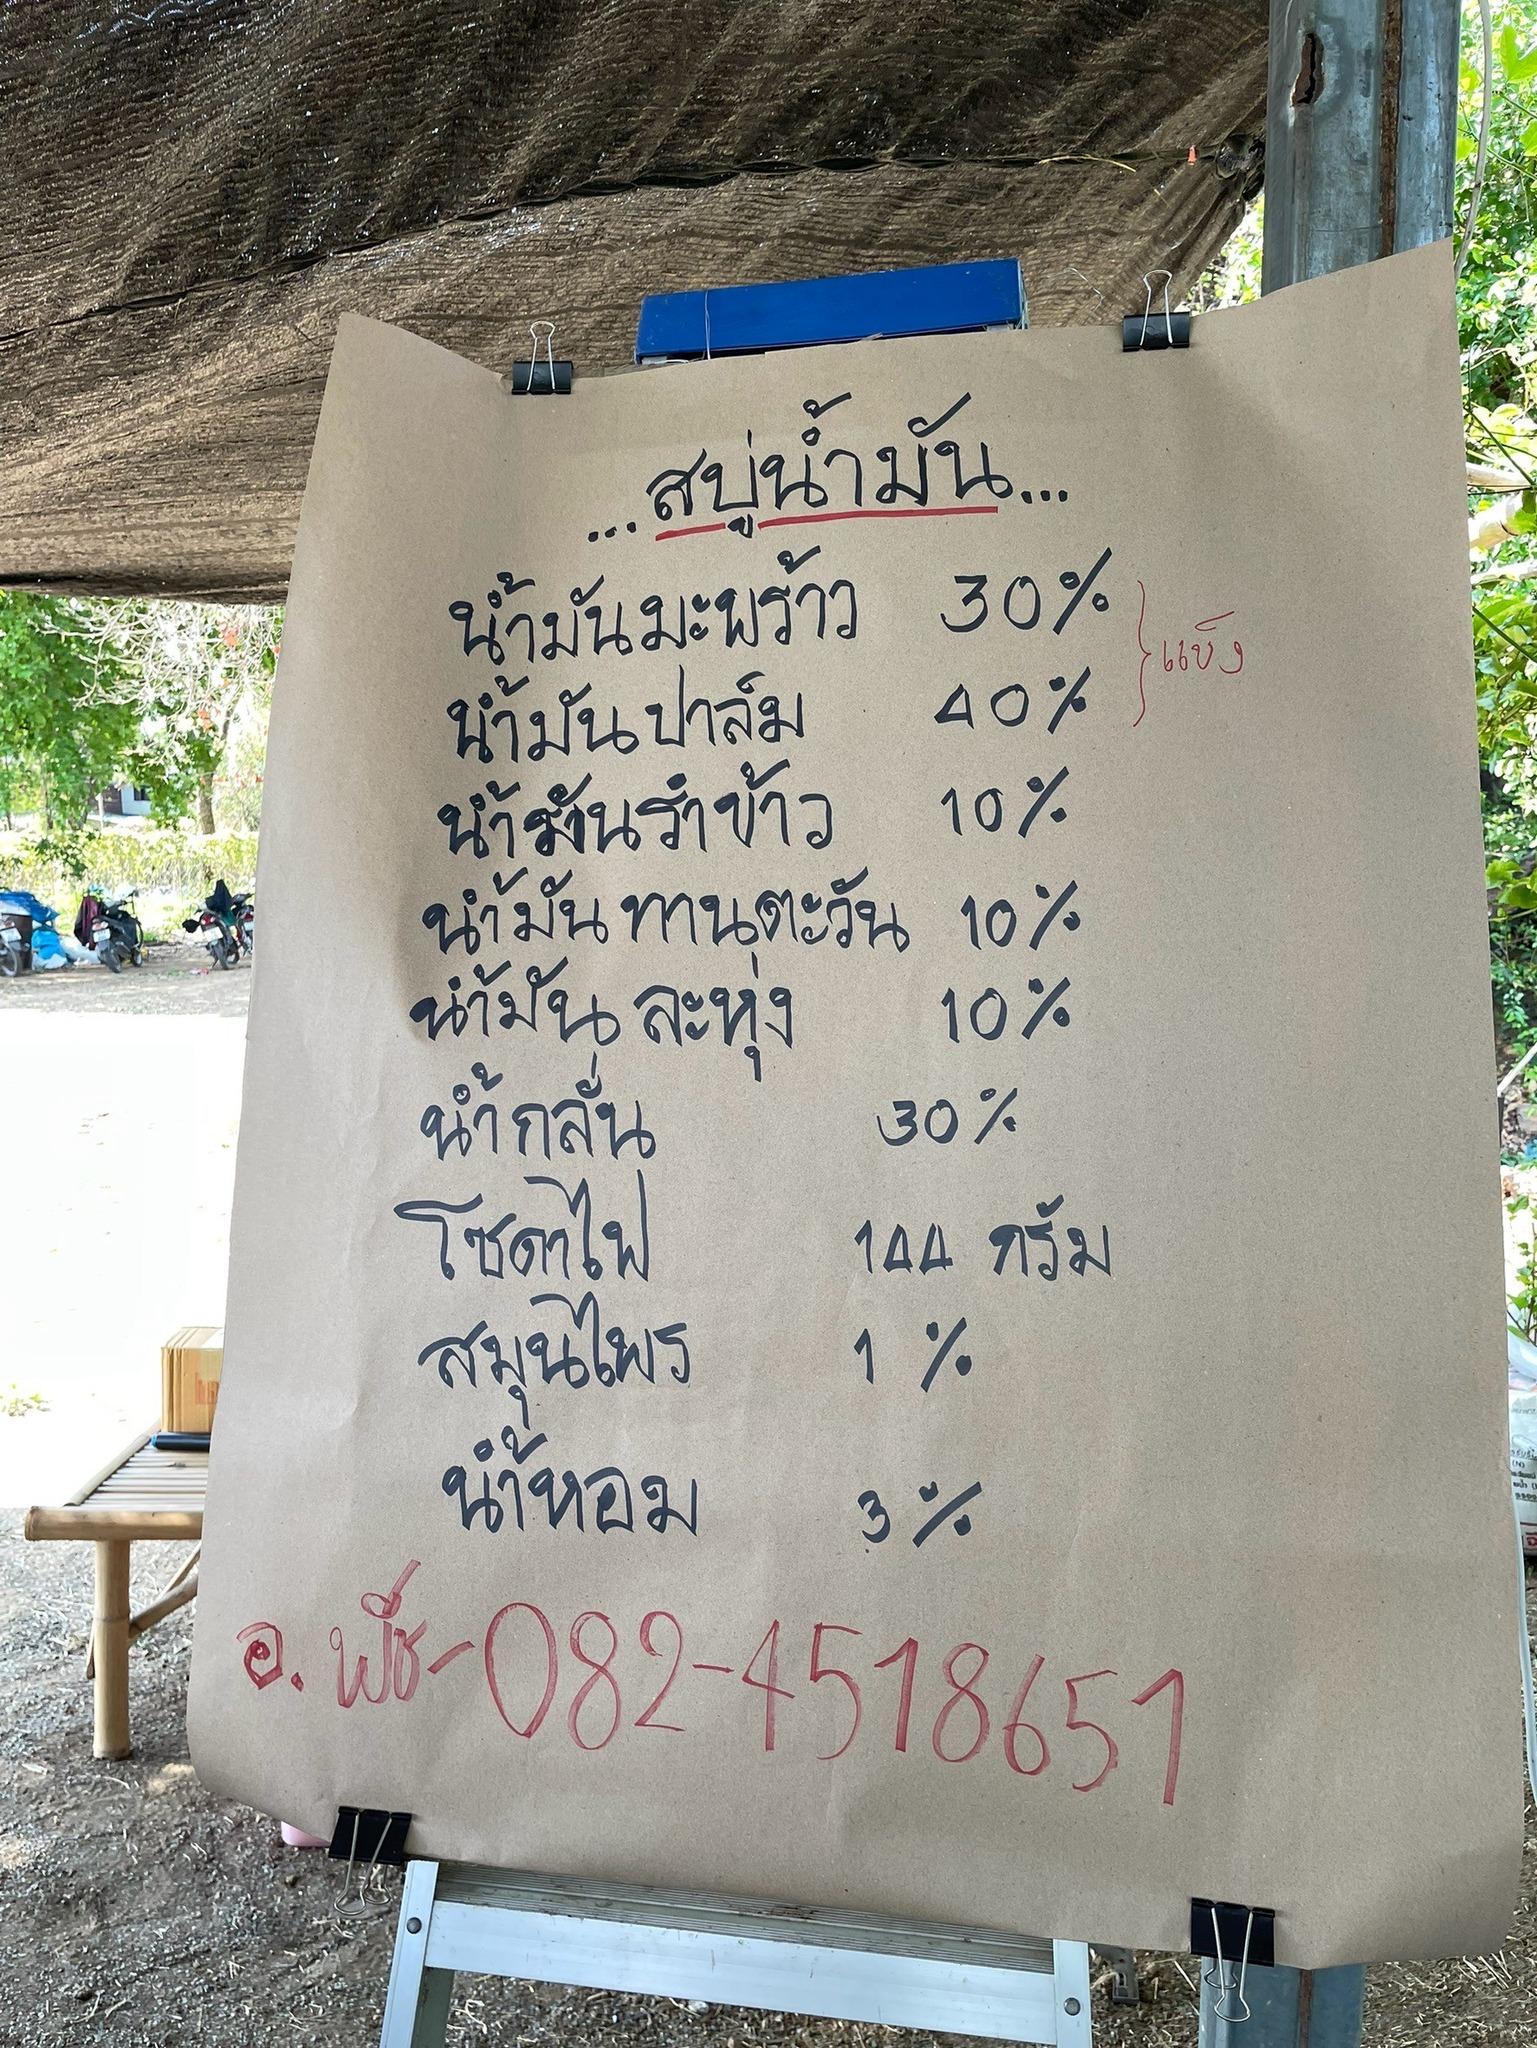 ...สบู่น้ำมัน...
น้ำมันมะพร้าว 30%
แข็ง
น้ำมันปาล์ม 40%
น้ำมันรำข้าว 10%
น้ำมันทานตะวัน 10%
น้ำมันละหุ่ง 10%
น้ำกลั่น 30%
โซดาไฟ 144 กรัม
สมุนไพร 1 %
น้ำหอม 3%
อ. พืช-082-4518651